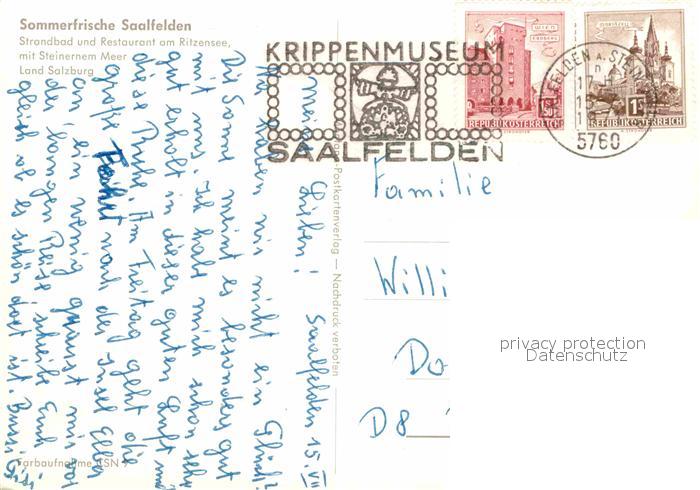 Sommerfrische Saalfelden
Strandbad und Restaurant am Ritzensee,
mit Steinernem Meer
Land Salzburg
KRIPPENMUSEUM
SAALFELDEN
WIEN
ERDBERG
REPUBLIK ÖSTERREICH
MARIAZELL
1S
REPUBLIK ÖSTERREICH
5760
Postkartenverlag — Nachdruck verboten
Familie
Willi
Do
D8
privacy protection
Datenschutz
Saalfelden 15. VII
meine Lieben!
Haben wir nicht ein Glück?
Die Sonne meint es besonders gut
mit uns. Ich habe mich schon sehr
gut erholt in dieser guten Luft und
diese Ruhe. Am Freitag geht die
große Fahrt nach der Insel
ein wenig mir vor
der langen Reise schreibe Euch
gleich ob es schön dort ist
Farbaufnahme